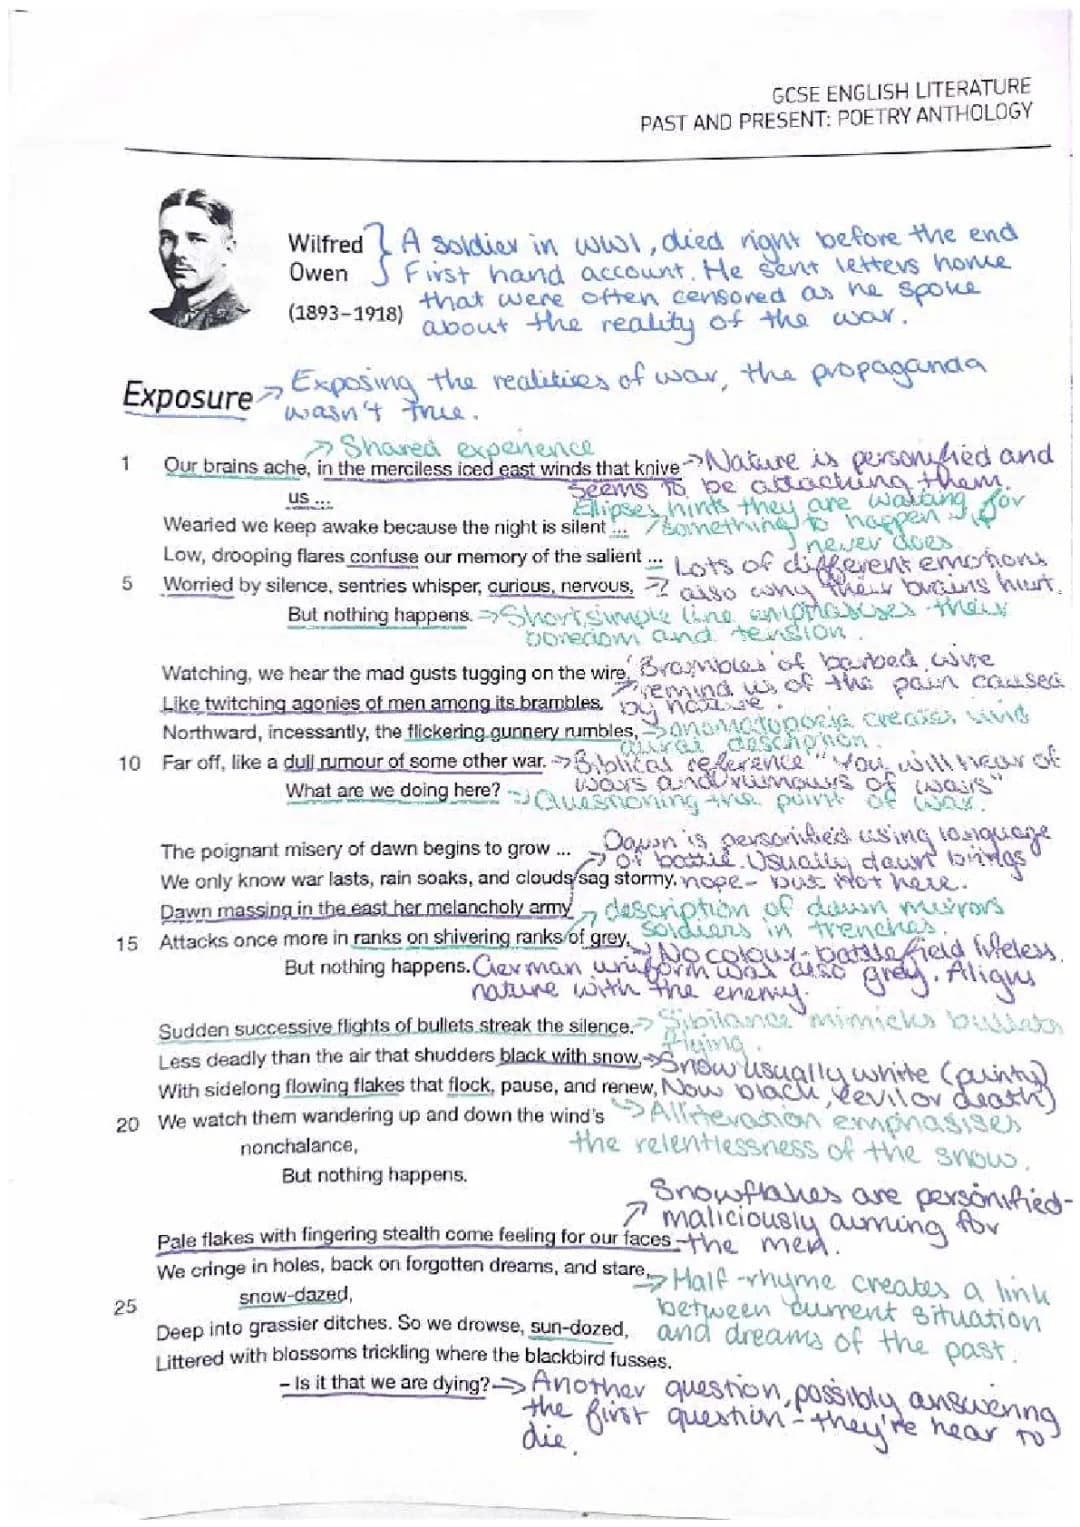 GCSE ENGLISH LITERATURE
PAST AND PRESENT: POETRY ANTHOLOGY
Wilfred
Owen
(1893–1918)
A soldier in WW1, died right before the end
First hand account. He sent letters home
that were often censored as he spoke
about the reality of the war.
Exposure
Exposing the realities of war, the propaganda
wasn't true.
Shared experience
1 Our brains ache, in the merciless iced east winds that knive
us ...
Nature is personified and
seems to be attacking them.
Ellipses hints they are waiting for
something to happen - it
never does
Wearied we keep awake because the night is silent ...
Low, drooping flares confuse our memory of the salient ...
5 Worried by silence, sentries whisper, curious, nervous,
Lots of different emotions
also why their brains hurt.
But nothing happens.
Short simple line emphasises their
boredom and tension.
Watching, we hear the mad gusts tugging on the wire,
Like twitching agonies of men among its brambles.
'Brambles' of barbed wire
remind us of the pain caused
by nature.
Northward, incessantly, the flickering gunnery rumbles,
onomatopoeia creates vivid
aural description.
10 Far off, like a dull rumour of some other war.
Biblical reference "You will hear of
wars and rumours of wars"
What are we doing here?
Questioning the point of war.
The poignant misery of dawn begins to grow ...
We only know war lasts, rain soaks, and clouds sag stormy.
Dawn is personified using language
of battle. Usually dawn brings
hope - but not here.
Dawn massing in the east her melancholy army
description of dawn mirrors
soldiers in trenches.
15 Attacks once more in ranks on shivering ranks of grey,
But nothing happens.
No colour - battlefield lifeless.
German uniform was also grey. Aligns
nature with the enemy.
Sudden successive flights of bullets streak the silence.
Sibilance mimicks bullets
flying.
Less deadly than the air that shudders black with snow,
Snow usually white (purity)
Now black, (evil or death)
With sidelong flowing flakes that flock, pause, and renew,
Alliteration emphasises
the relentlessness of the snow.
20 We watch them wandering up and down the wind's
nonchalance,
But nothing happens.
Snowflakes are personified -
maliciously aiming for
the men.
Pale flakes with fingering stealth come feeling for our faces –
We cringe in holes, back on forgotten dreams, and stare,
snow-dazed,
Half-rhyme creates a link
between current situation
and dreams of the past.
25
Deep into grassier ditches. So we drowse, sun-dozed,
Littered with blossoms trickling where the blackbird fusses.
– Is it that we are dying?
Another question, possibly answering
the first question - they're near to
die.